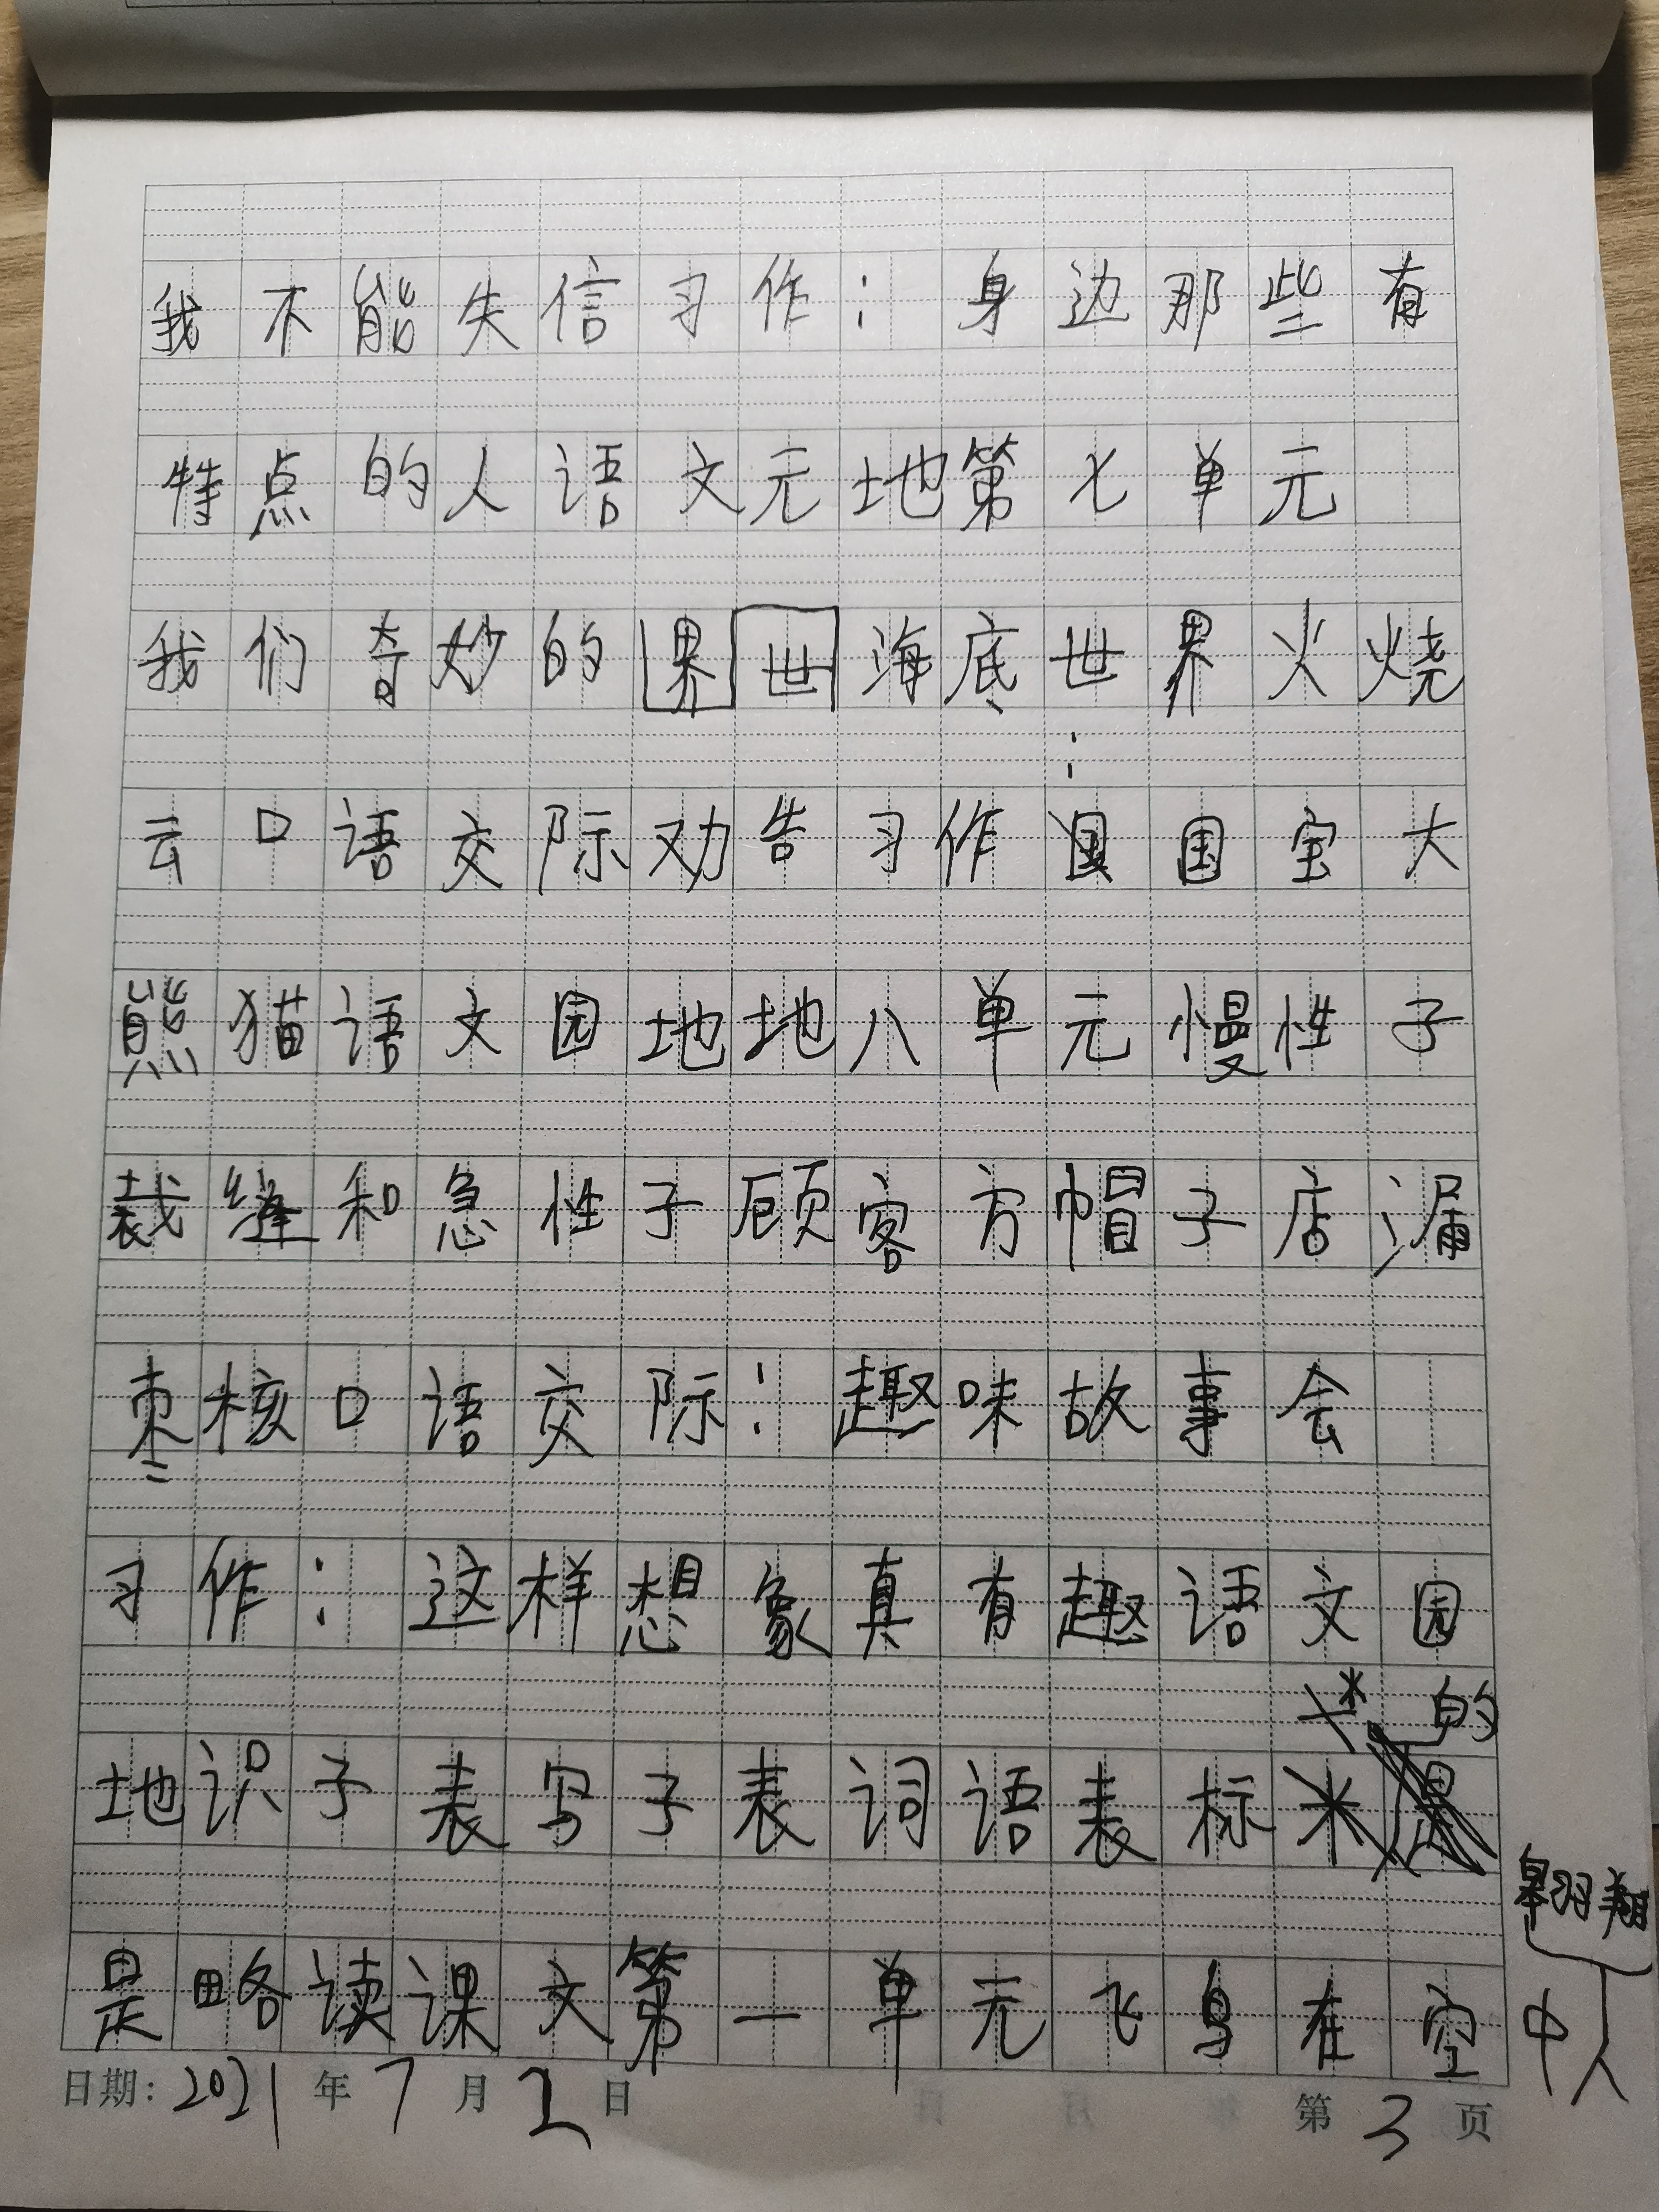 我不能失信习作：身边那些有
特点的人语文元地第七单元
我们奇妙的界世海底世界火烧
云口语交际劝告习作：国宝大
熊猫语文园地地八单元慢性子
裁缝和急性子顾客方帽子店漏
枣核口语交际：趣味故事会
习作：这样想象真有趣语文园
地识子表写子表词语表标米
*的
是略读课文第一单元飞鸟在空中
翱翔
人
日期：2021年7月2日 第3页